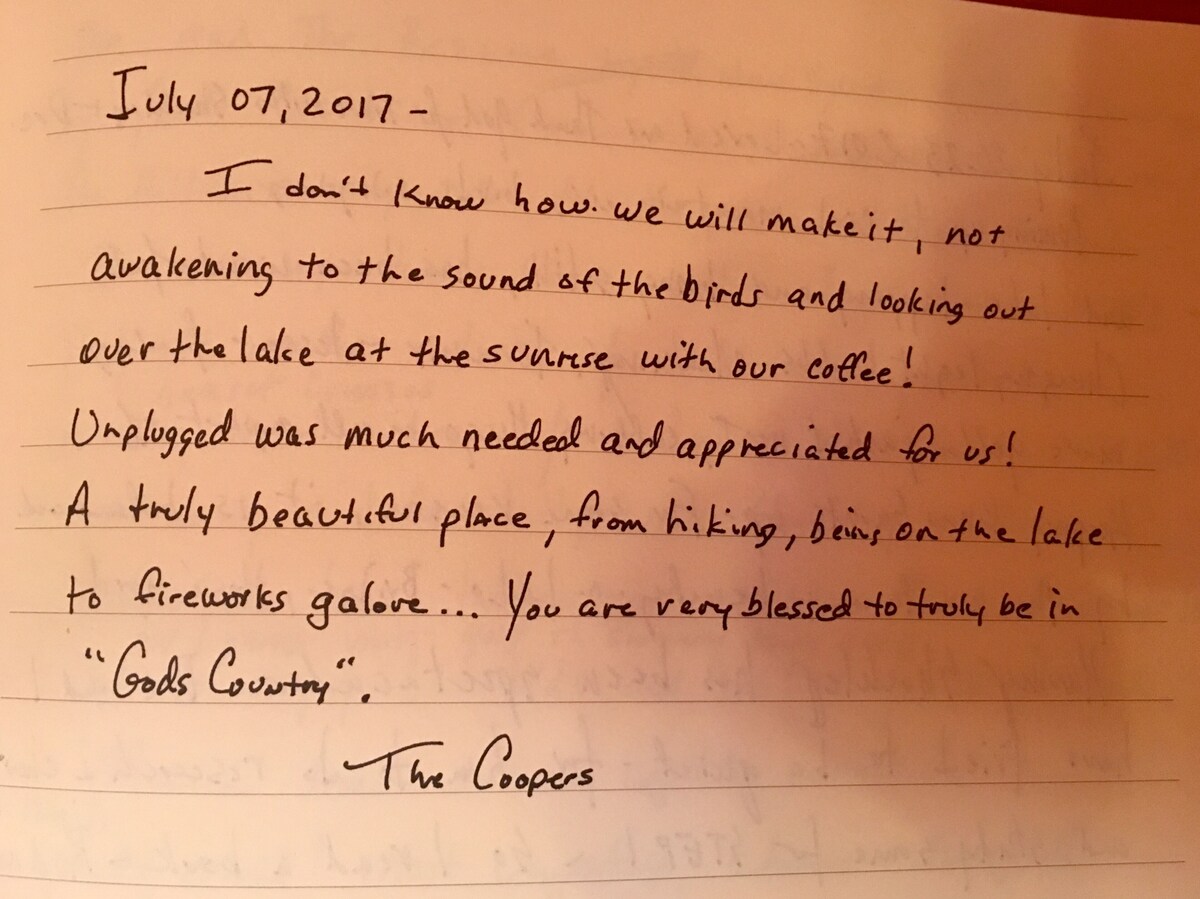 July 07, 2017 -
I don't know how we will make it, not
awakening to the sound of the birds and looking out
over the lake at the sunrise with our coffee!
Unplugged was much needed and appreciated for us!
A truly beautiful place, from hiking, being on the lake
to fireworks galore... You are very blessed to truly be in
"Gods Country".
The Coopers